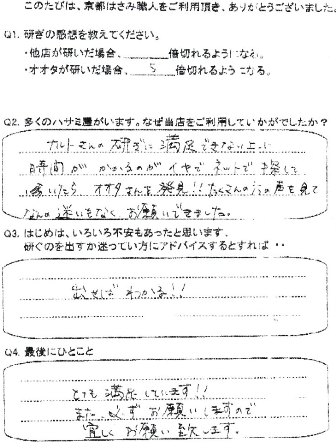 このたびは、京都はさみ職人をご利用頂き、ありがとうございました。
Q1. 研ぎの感想を教えてください。
・他店が研いだ場合、　　倍切れるようになる。
・オオタが研いだ場合、 5 倍切れるようになる。
Q2. 多くのハサミ屋がいます。なぜ当店をご利用していかがでしたか？
さんの研ぎに満足できない上に
時間がかかるのがイヤでネットで探して
いたら オオタさんを発見!! たくさんの の声を見て
なんの迷いもなくお願いできました。
Q3. はじめは、いろいろ不安もあったと思います。
研ぐのを出すか迷ってい方にアドバイスするとすれば・・
出せばわかる!!
Q4. 最後にひとこと
とても満足しています!!
また、必ずお願いしますので
宜しくお願い致します。